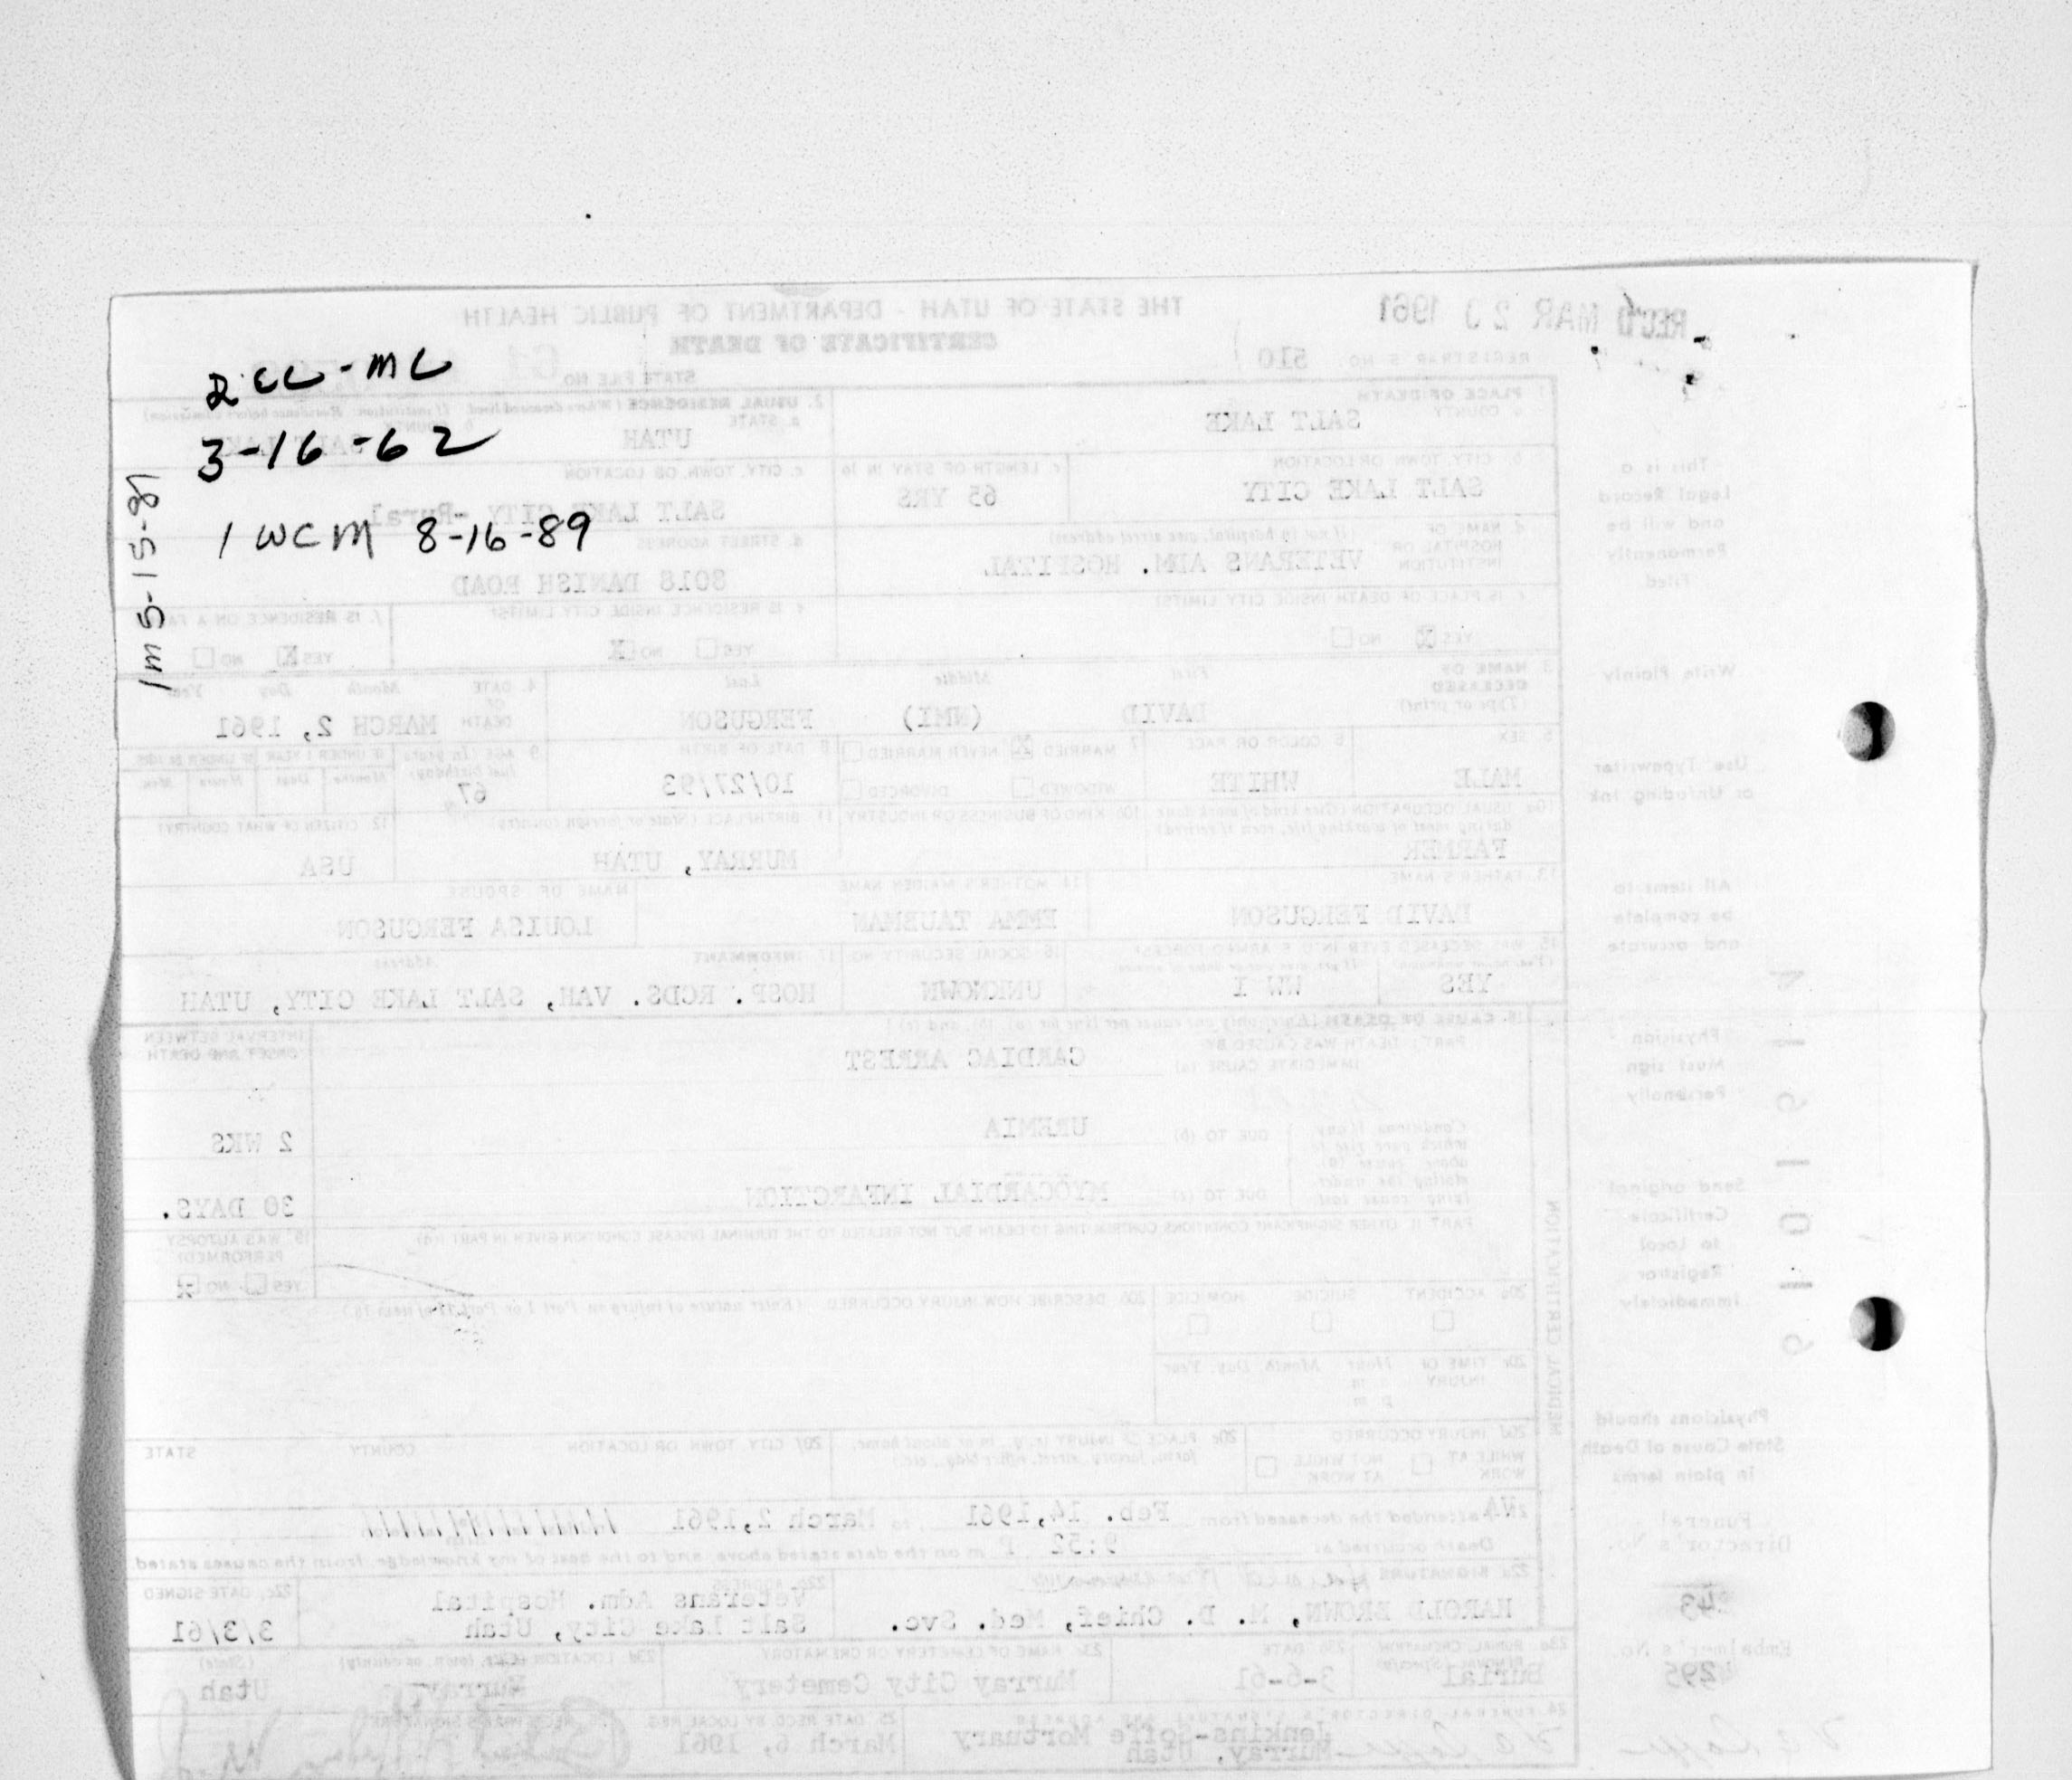 2 CC-ML
3-16-62
1 WCM 8-16-89
1m 5-15-81
REC'D MAR 20 1961
THE STATE OF UTAH - DEPARTMENT OF PUBLIC HEALTH
CERTIFICATE OF DEATH
REGISTRAR'S NO. 510
STATE FILE NO. 61
1. PLACE OF DEATH
a. COUNTY
SALT LAKE
2. USUAL RESIDENCE (Where deceased lived. If institution: Residence before admission)
a. STATE
UTAH
b. COUNTY
SALT LAKE
b. CITY, TOWN OR LOCATION
SALT LAKE CITY
c. LENGTH OF STAY IN 1b
65 YRS
c. CITY, TOWN, OR LOCATION
SALT LAKE CITY -Rural
d. NAME OF HOSPITAL OR INSTITUTION
(If not in hospital, give street address)
VETERANS ADM. HOSPITAL
d. STREET ADDRESS
8018 DANISH ROAD
e. IS PLACE OF DEATH INSIDE CITY LIMITS?
YES X NO
e. IS RESIDENCE INSIDE CITY LIMITS?
YES NO X
f. IS RESIDENCE ON A FA
YES X NO
3. NAME OF DECEASED
(Type or print)
First Middle Last
DAVID (NMI) FERGUSON
4. DATE OF DEATH
Month Day Year
MARCH 2, 1961
5. SEX
MALE
6. COLOR OR RACE
WHITE
7. MARRIED X NEVER MARRIED
WIDOWED DIVORCED
8. DATE OF BIRTH
10/27/93
9. AGE (In years last birthday)
67
IF UNDER 1 YEAR
Months Days
IF UNDER 24 HRS.
Hours Min.
10a. USUAL OCCUPATION (Give kind of work done during most of working life, even if retired)
FARMER
10b. KIND OF BUSINESS OR INDUSTRY
11. BIRTHPLACE (State or foreign country)
MURRAY, UTAH
12. CITIZEN OF WHAT COUNTRY?
USA
13. FATHER'S NAME
DAVID FERGUSON
14. MOTHER'S MAIDEN NAME
EMMA TAUBMAN
NAME OF SPOUSE
LOUISA FERGUSON
15. WAS DECEASED EVER IN U.S. ARMED FORCES?
YES WW I
16. SOCIAL SECURITY NO.
UNKNOWN
17. INFORMANT Address
HOSP. RCDS. VAH, SALT LAKE CITY, UTAH
18. CAUSE OF DEATH [Enter only one cause per line for (a), (b), and (c)]
INTERVAL BETWEEN ONSET AND DEATH
PART I. DEATH WAS CAUSED BY:
IMMEDIATE CAUSE (a) CARDIAC ARREST
Conditions, if any which gave rise to above cause (a), stating the underlying cause last.
DUE TO (b) UREMIA 2 WKS
DUE TO (c) MYOCARDIAL INFARCTION 30 DAYS.
PART II. OTHER SIGNIFICANT CONDITIONS CONTRIBUTING TO DEATH BUT NOT RELATED TO THE TERMINAL DISEASE CONDITION GIVEN IN PART I(a)
19. WAS AUTOPSY PERFORMED?
YES NO X
20a. ACCIDENT SUICIDE HOMICIDE
20b. DESCRIBE HOW INJURY OCCURRED. (Enter nature of injury in Part I or Part II of item 18.)
20c. TIME OF INJURY Hour Month, Day, Year
a. m.
p. m.
20d. INJURY OCCURRED
WHILE AT WORK NOT WHILE AT WORK
20e. PLACE OF INJURY (e.g., in or about home, farm, factory, street, office bldg., etc.)
20f. CITY, TOWN, OR LOCATION COUNTY STATE
MEDICAL CERTIFICATION
21. VA attended the deceased from Feb. 14,1961 to March 2,1961
Death occurred at 9:52 P m on the date stated above, and to the best of my knowledge, from the causes stated.
22a. SIGNATURE
HAROLD BROWN, M. D. Chief, Med. Svc.
22b. ADDRESS
Veterans Adm. Hospital
Salt Lake City, Utah
22c. DATE SIGNED
3/3/61
23a. BURIAL, CREMATION, REMOVAL (Specify)
Burial
23b. DATE
3-6-61
23c. NAME OF CEMETERY OR CREMATORY
Murray City Cemetery
23d. LOCATION (City, town, or county) (State)
Murray Utah
24. FUNERAL DIRECTOR'S SIGNATURE AND ADDRESS
Jenkins-Soffe Mortuary
Murray, Utah
25. DATE RECD. BY LOCAL REG.
March 6, 1961
26. REGISTRAR'S SIGNATURE
This is a Legal Record and will be Permanently Filed
Write Plainly
Use Typewriter or Unfading Ink
All items to be complete and accurate
Physician Must sign Personally
Send original Certificate to Local Registrar immediately
Physicians should State Cause of Death in plain terms
Funeral Director's No.
43
Embalmer's No.
295